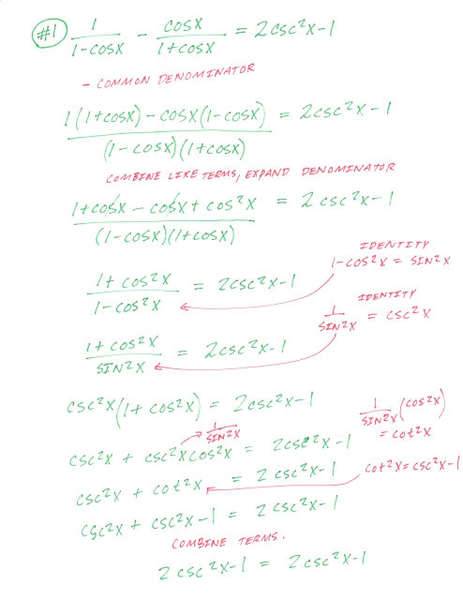 #1 1/(1-cosx) - cosx/(1+cosx) = 2csc²x-1
- COMMON DENOMINATOR
1(1+cosx) - cosx(1-cosx) / (1-cosx)(1+cosx) = 2csc²x-1
COMBINE LIKE TERMS, EXPAND DENOMINATOR
1+cosx - cosx + cos²x / (1-cosx)(1+cosx) = 2csc²x-1
IDENTITY
1-cos²x = SIN²x
1+cos²x / 1-cos²x = 2csc²x-1
IDENTITY
1/SIN²x = csc²x
1+cos²x / SIN²x = 2csc²x-1
csc²x(1+cos²x) = 2csc²x-1
1/SIN²x
1/SIN²x (cos²x)
= cot²x
csc²x + csc²xcos²x = 2csc²x-1
csc²x + cot²x = 2csc²x-1
cot²x = csc²x-1
csc²x + csc²x-1 = 2csc²x-1
COMBINE TERMS.
2csc²x-1 = 2csc²x-1